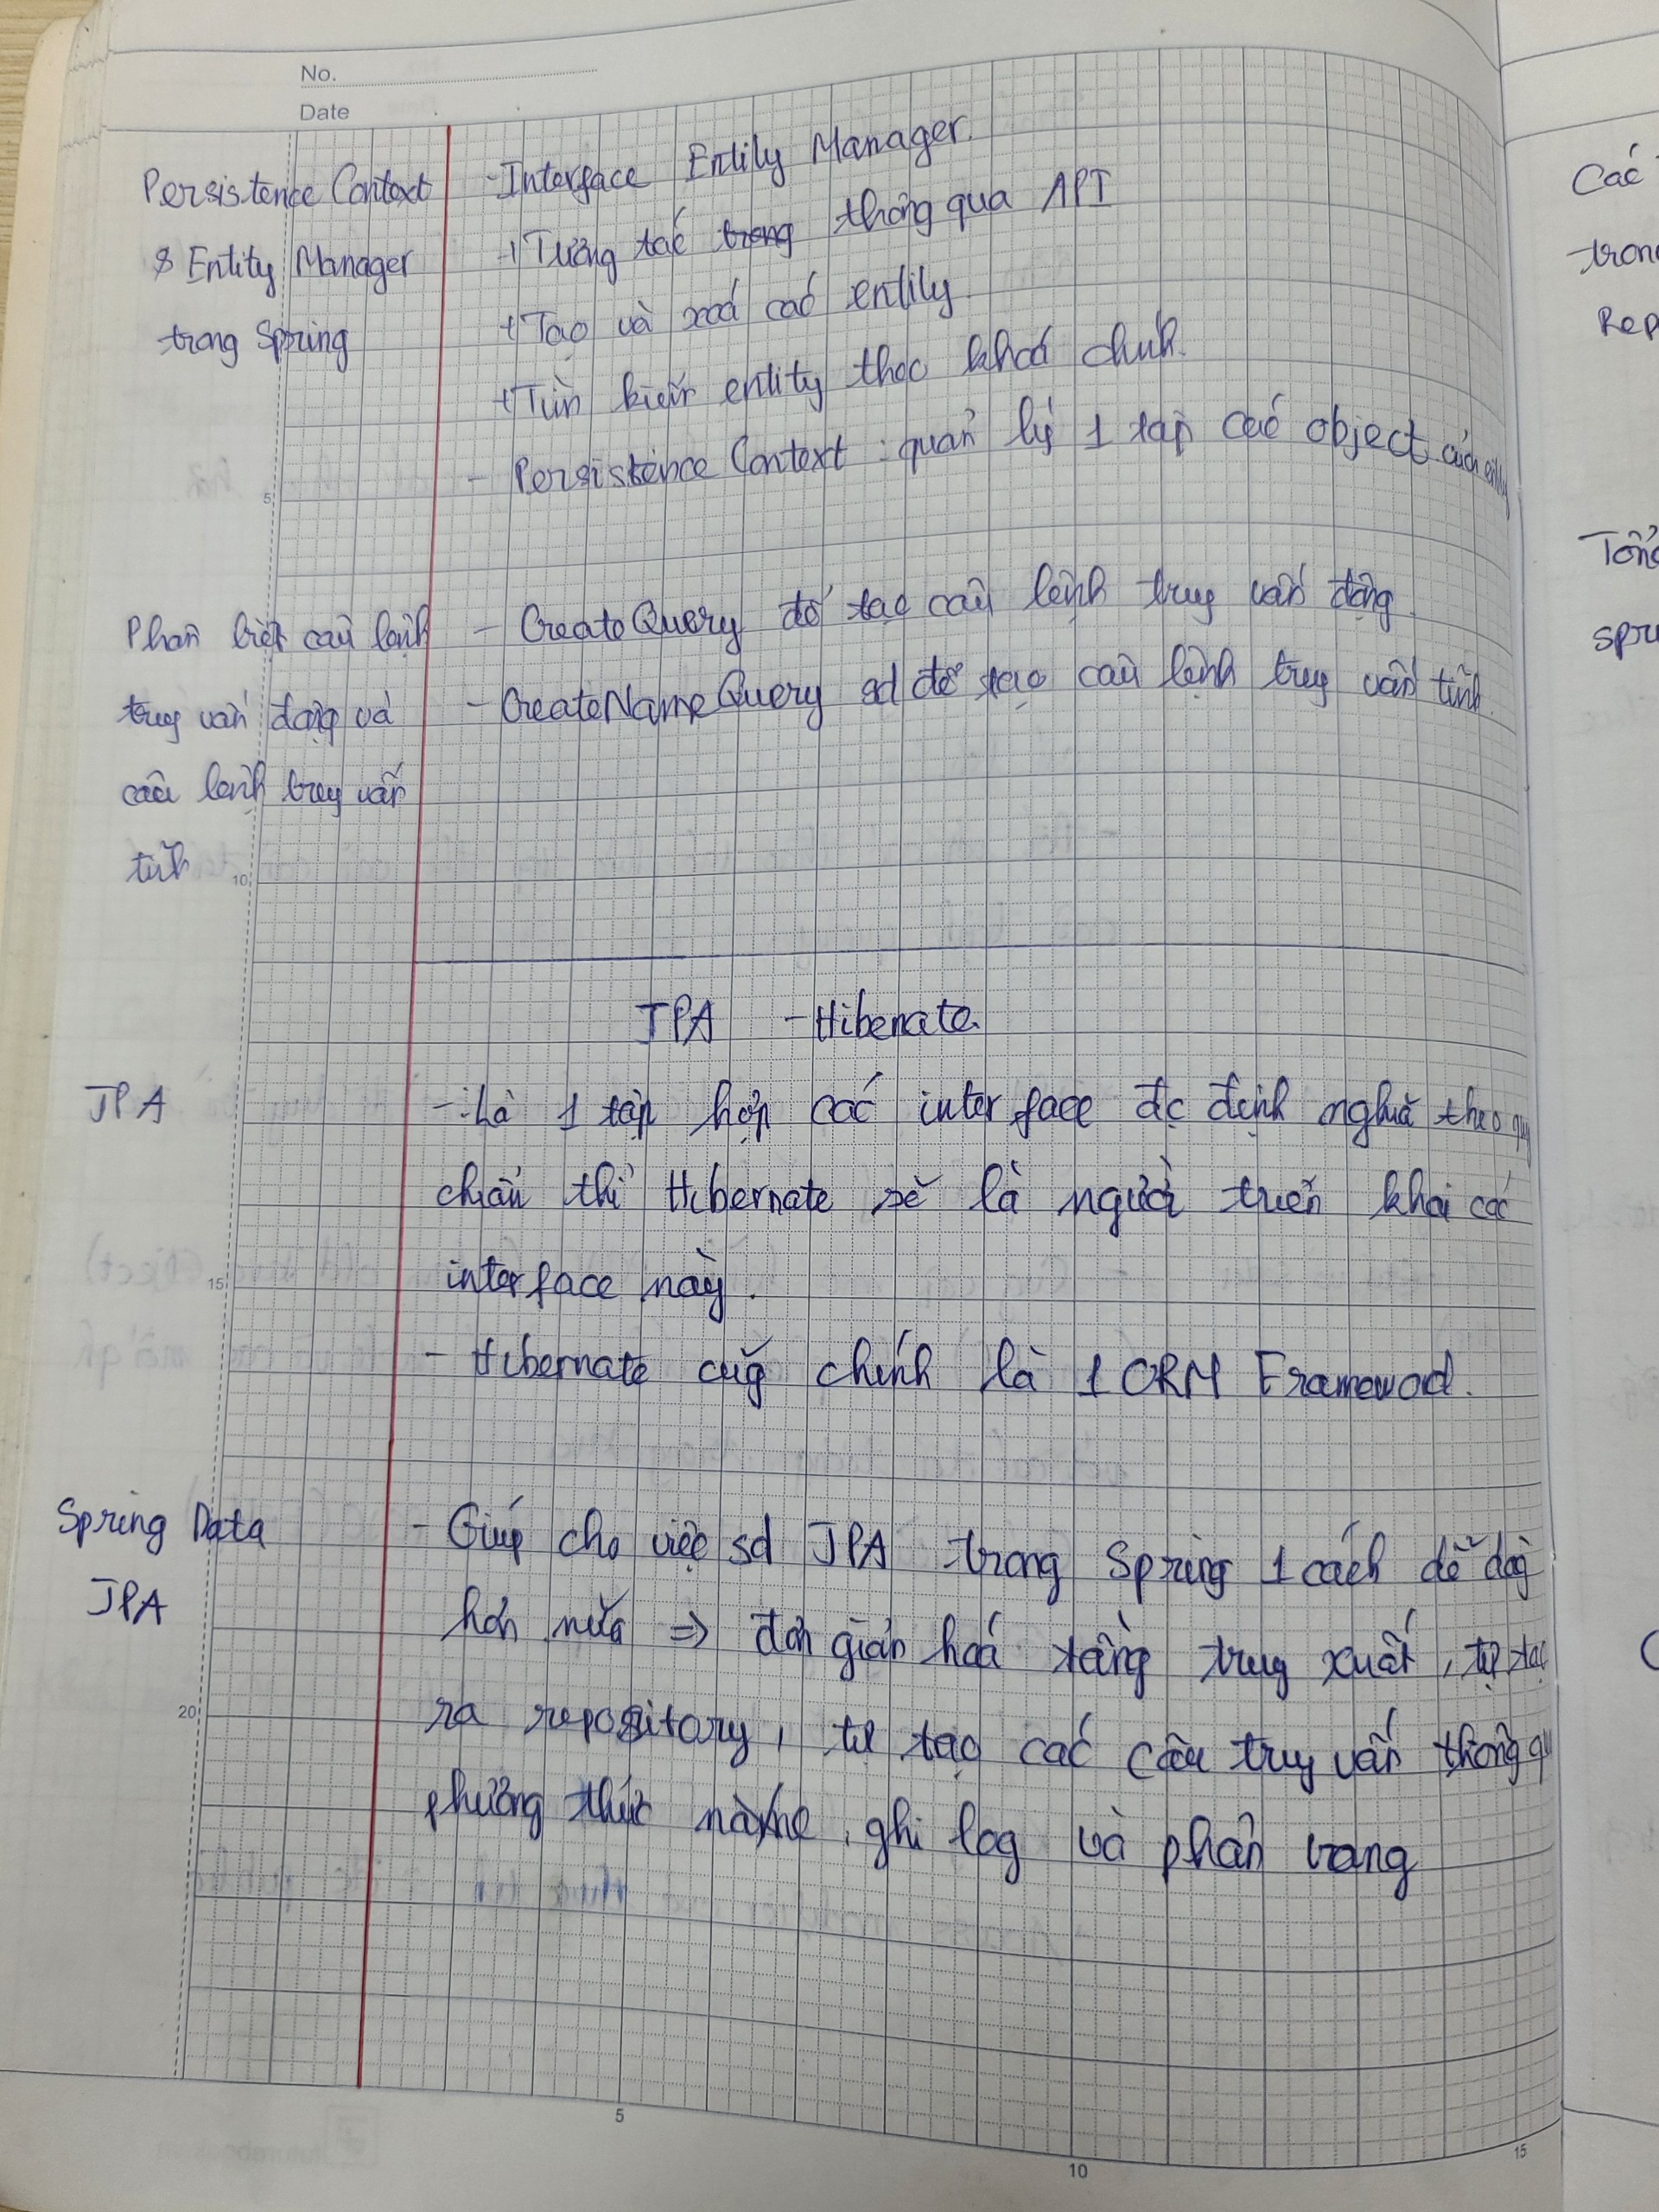 No.
Date
Persistence Context
& Entity Manager
trong Spring
- Interface Entity Manager.
+ Tương tác trong thông qua API
+ Tạo và xoá các entity
+ Tìm kiếm entity theo khoá chính.
- Persistence Context : quản lý 1 tập các object của entity
5
Phân biệt câu lệnh
truy vấn động và
câu lệnh truy vấn
tĩnh
- CreateQuery để tạo câu lệnh truy vấn động.
- CreateNameQuery sd để tạo câu lệnh truy vấn tĩnh.
10
JPA - Hibenate.
JPA
- Là 1 tập hợp các interface đc định nghĩa theo quy
chẩn thì Hibernate sẽ là người triển khai các
interface này.
15
- Hibernate cũg chính là 1 ORM Framewod.
Spring Data
JPA
- Giúp cho việc sd JPA trong Spring 1 cách dễ dàg
hơn nữa => đơn giản hoá tầng truy xuất, tự tạo
20
ra repository, tự tạo các câu truy vấn thông qu
phương thức ghi log và phân trang
5
10
15
Các
tron
Rep
Tổn
spri